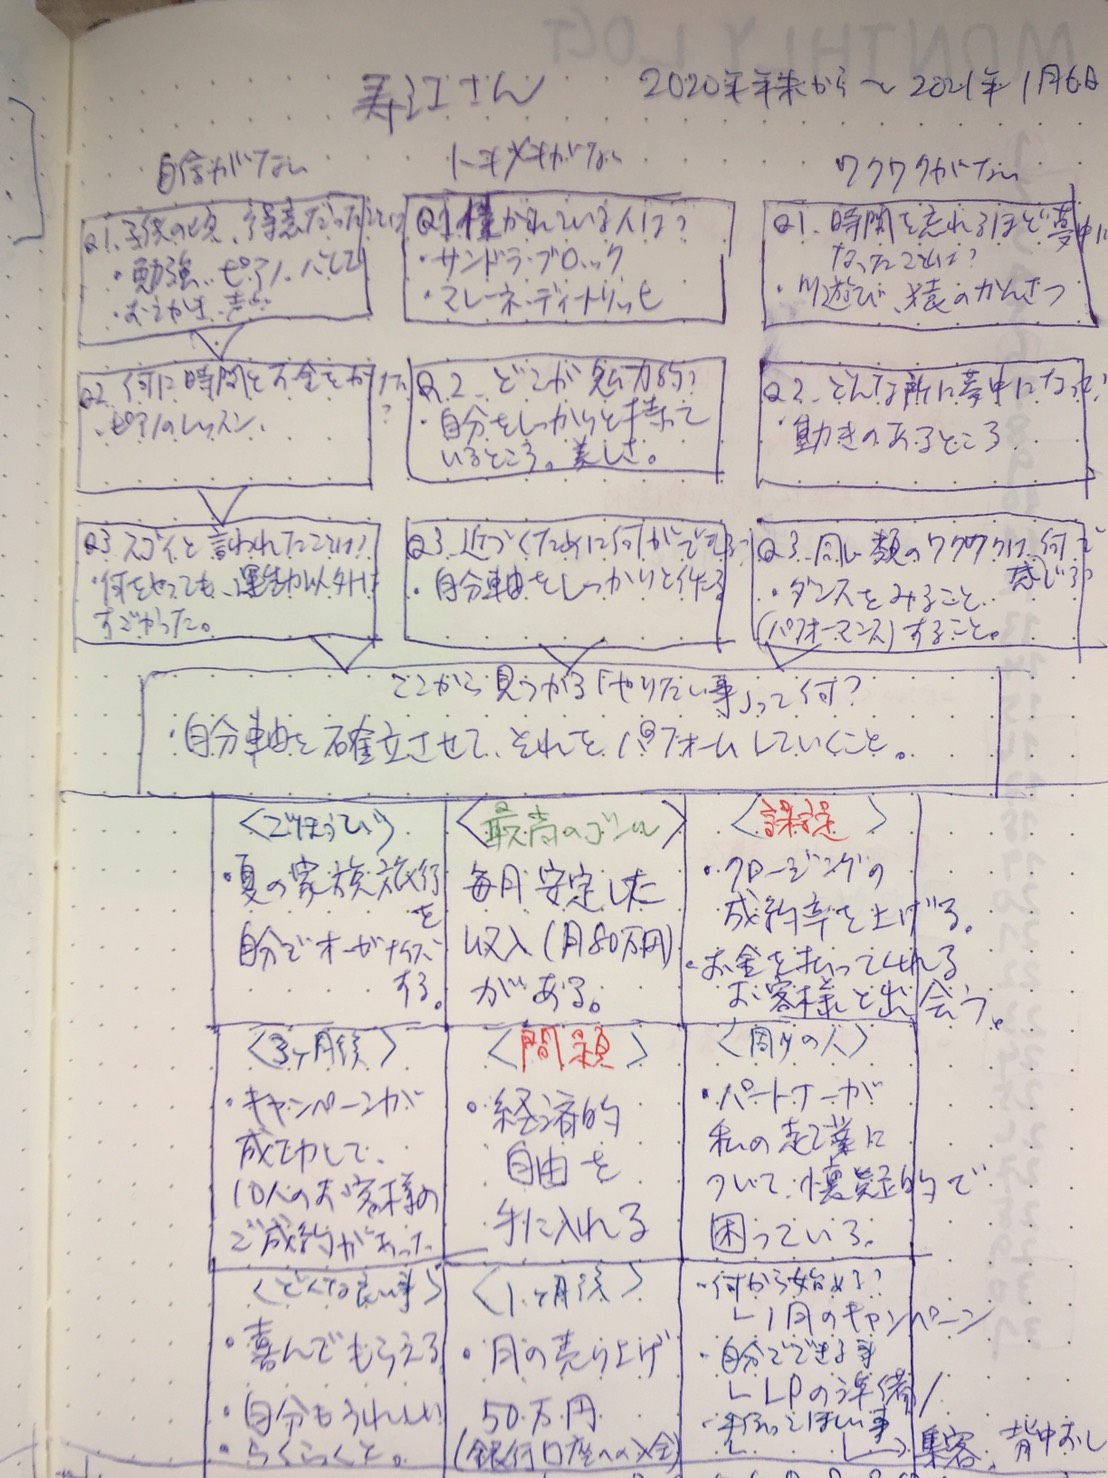 寿江さん
2020年年末から〜2021年1月6日
自信がない
Q1. 子供の頃、得意だったことは
・勉強、ピアノ、バレエ
・おえかき、
Q2. 何に時間とお金をかけた?
・ピアノのレッスン
Q3. スゴイと言われたことは?
・何をやっても、運動以外は
すごかった。
トキメキがない
Q1. 憧かれている人は?
・サンドラ・ブロック
・マレーネ・ディートリッヒ
Q2. どこが魅力的?
・自分をしっかりと持って
いるところ。美しさ。
Q3. 近づくために何ができる?
・自分軸をしっかりと作る
ワクワクがない
Q1. 時間を忘れるほど夢中に
なったことは?
・川遊び、猿のかんさつ
Q2. どんな所に夢中になった?
・動きのあるところ
Q3. 同じ類のワクワクは、何で
感じる?
・ダンスをみること
(パフォーマンス)すること。
ここから見つかる「やりたい事」って何?
・自分軸を確立させて、それをパフォームしていくこと。
<ごほうび>
・夏の家族旅行
を
自分でオーガナイズ
する。
<最高のゴール>
毎月安定した
収入(月80万円)
がある。
<課題>
・クロージングの
成約率を上げる。
・お金を払ってくれる
お客様と出会う。
<3ヶ月後>
・キャンペーンが
成功して、
10人のお客様の
ご成約があった
<問題>
・経済的
自由を
手に入れる
<周りの人>
・パートナーが
私の起業に
ついて、懐疑的で
困っている。
<どんな良い事>
・喜んでもらえる
・自分もうれしい
・らくらくと。
<1ヶ月後>
・月の売り上げ
50万円
(銀行口座への入金)
・何から始める?
└1月のキャンペーン
・自分でできる事
└LPの準備/
・手伝ってほしい事
└→集客、背中おし